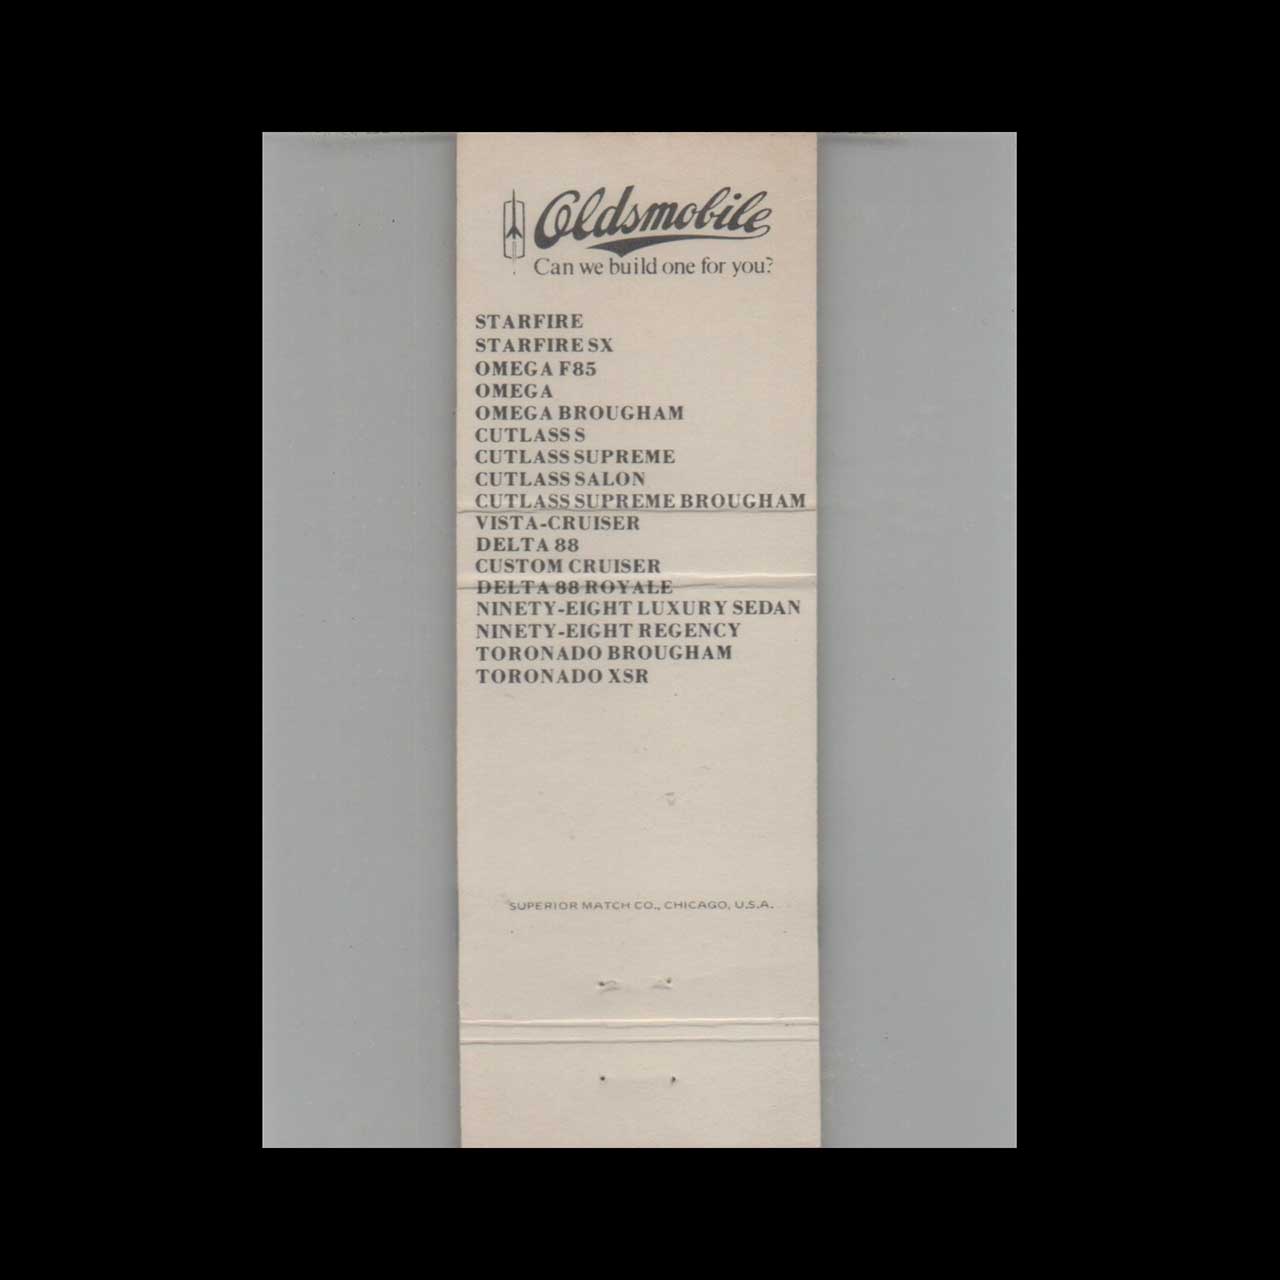 Oldsmobile
Can we build one for you?
STARFIRE
STARFIRE SX
OMEGA F85
OMEGA
OMEGA BROUGHAM
CUTLASS S
CUTLASS SUPREME
CUTLASS SALON
CUTLASS SUPREME BROUGHAM
VISTA-CRUISER
DELTA 88
CUSTOM CRUISER
DELTA 88 ROYALE
NINETY-EIGHT LUXURY SEDAN
NINETY-EIGHT REGENCY
TORONADO BROUGHAM
TORONADO XSR
SUPERIOR MATCH CO., CHICAGO, U.S.A.